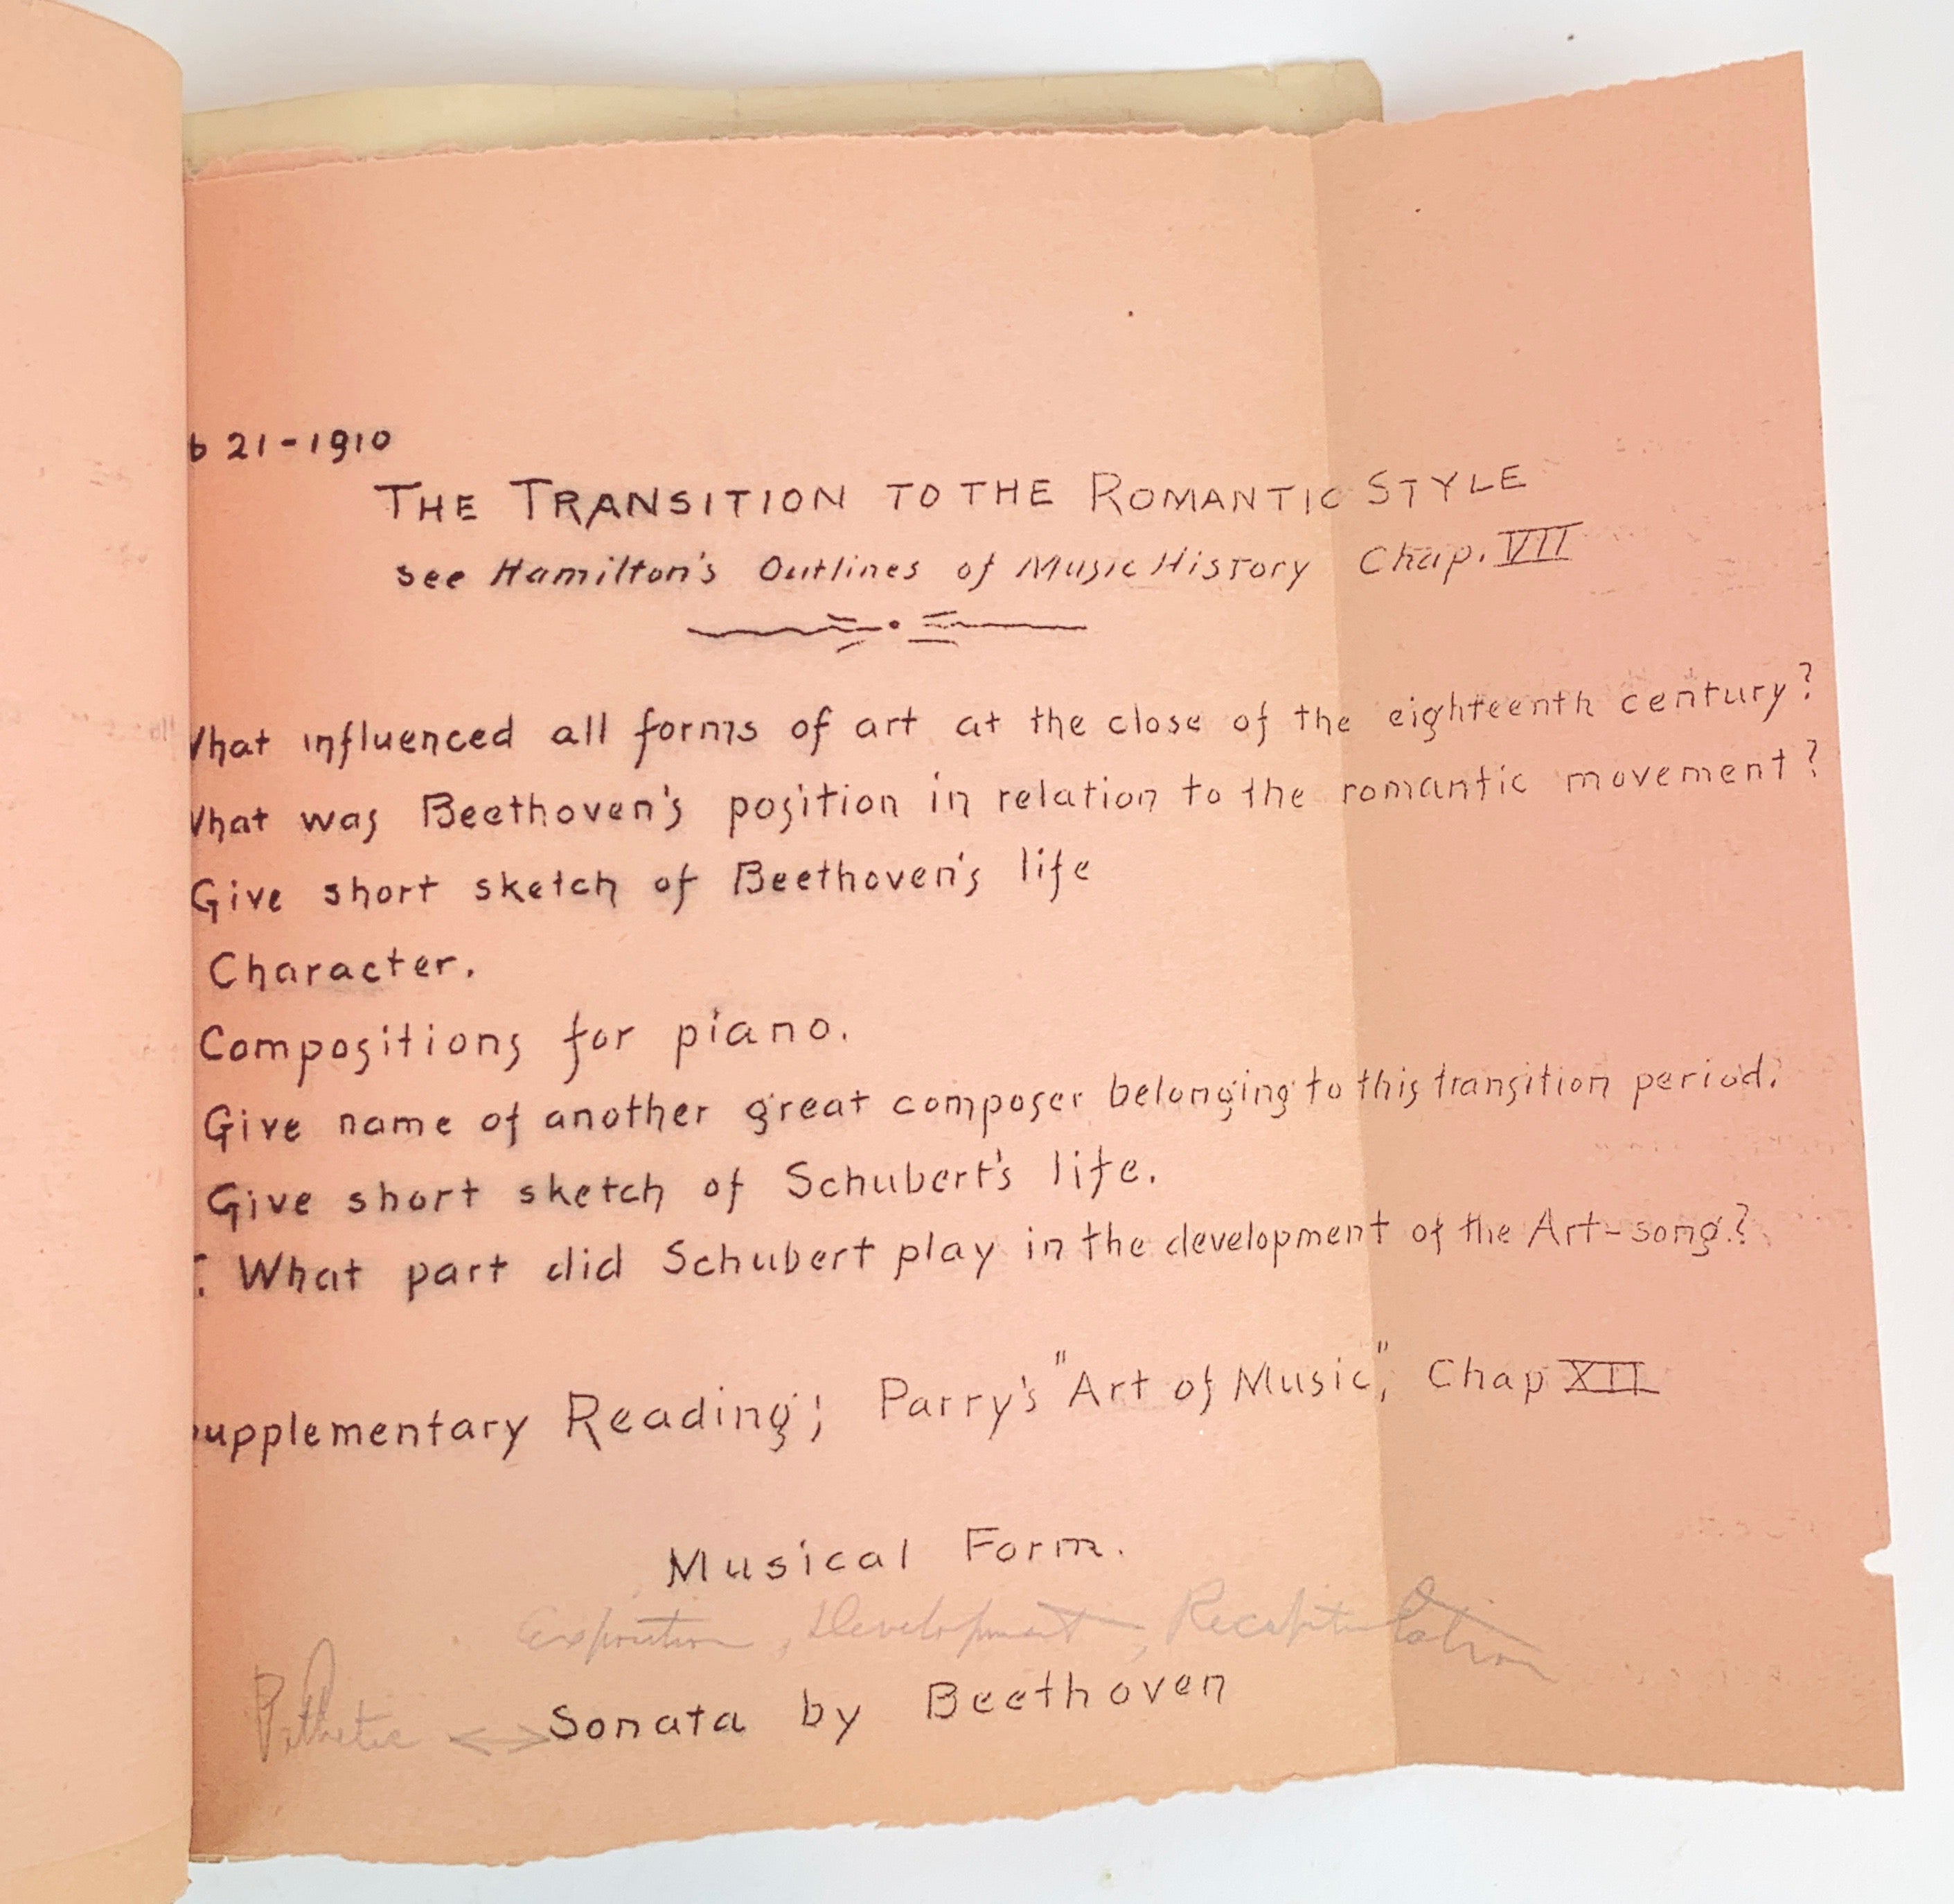 b 21-1910
THE TRANSITION TO THE ROMANTIC STYLE
see Hamilton's Outlines of Music History Chap. VII
What influenced all forms of art at the close of the eighteenth century?
What was Beethoven's position in relation to the romantic movement?
Give short sketch of Beethoven's life
Character.
Compositions for piano.
Give name of another great composer belonging to this transition period.
Give short sketch of Schubert's life.
: What part did Schubert play in the development of the Art-song.?
upplementary Reading; Parry's "Art of Music", Chap XII
Musical Form.
Exposition, Development, Recapitulation
Pathetic <-> Sonata by Beethoven